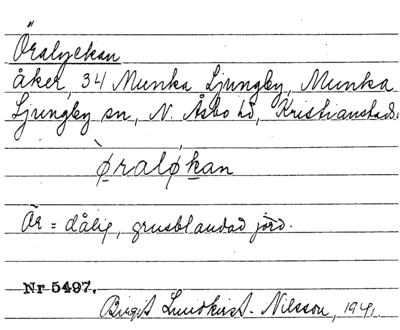 Öralyckan
åker, 34 Munka Ljungby, Munka
Ljungby sn, N. Åsbo hd, Kristianstads.
ø̀raløkan
Ör = dålig, grusblandad jord.
Nr 5497.
Birgit Lundkvist-Nilsson, 1941.